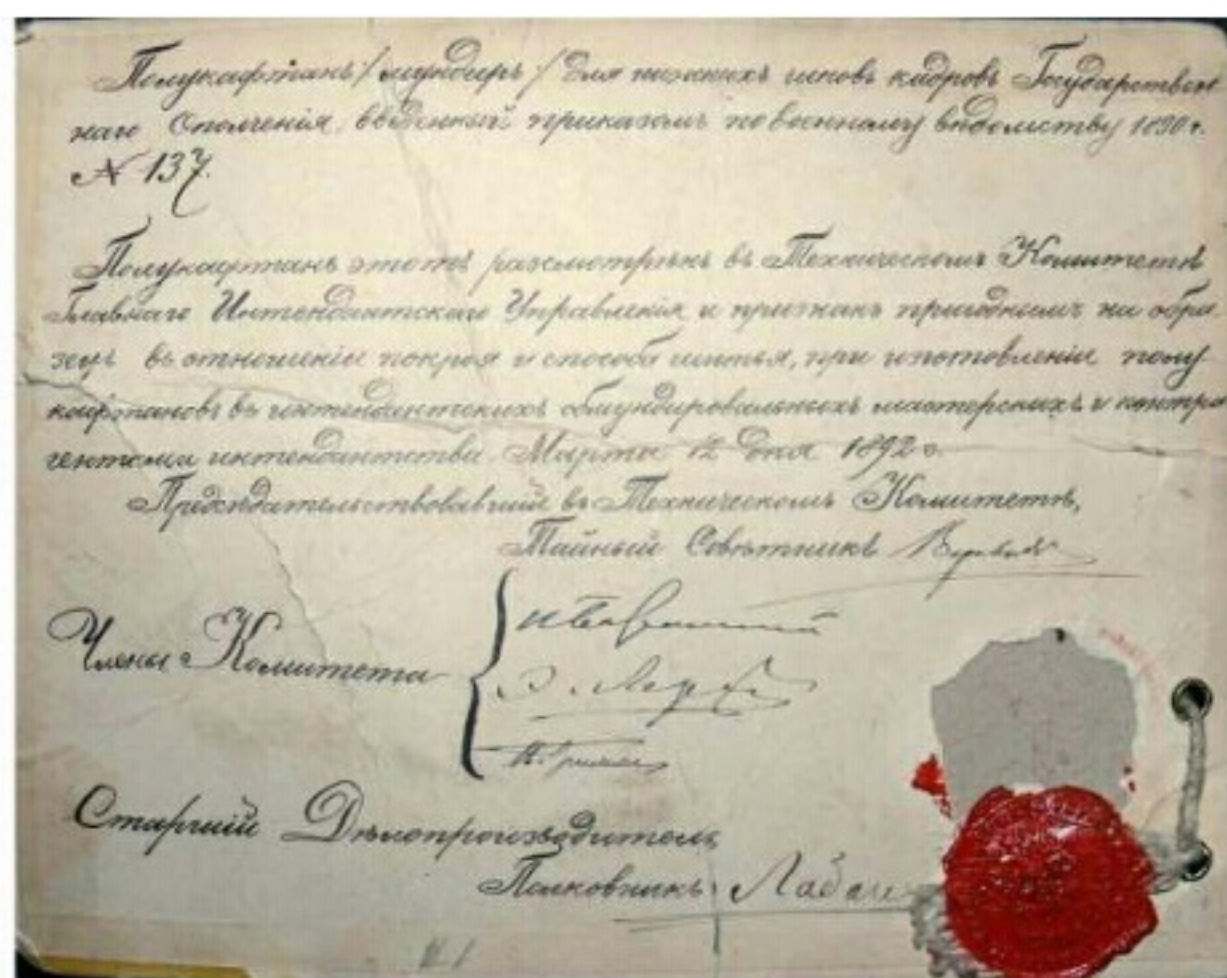 Полукафтанъ /мундиръ/ для нижнихъ чиновъ кадровъ Государствен
наго Ополченія, введенный приказомъ по военному вѣдомству 1890 г.
№ 137.
Полукафтанъ этотъ разсмотрѣнъ въ Техническомъ Комитетѣ
Главнаго Интендантскаго Управленія и признанъ пригоднымъ на обра-
зецъ въ отношеніи покроя и способа шитья, при изготовленіи полу-
кафтановъ въ интендантскихъ обмундировальныхъ мастерскихъ и контра
гентами интендантства. Марта 12 дня 1892 г.
Предсѣдательствовавшій въ Техническомъ Комитетѣ,
Тайный Совѣтникъ
Члены Комитета
Старшій Дѣлопроизводитель,
Полковникъ